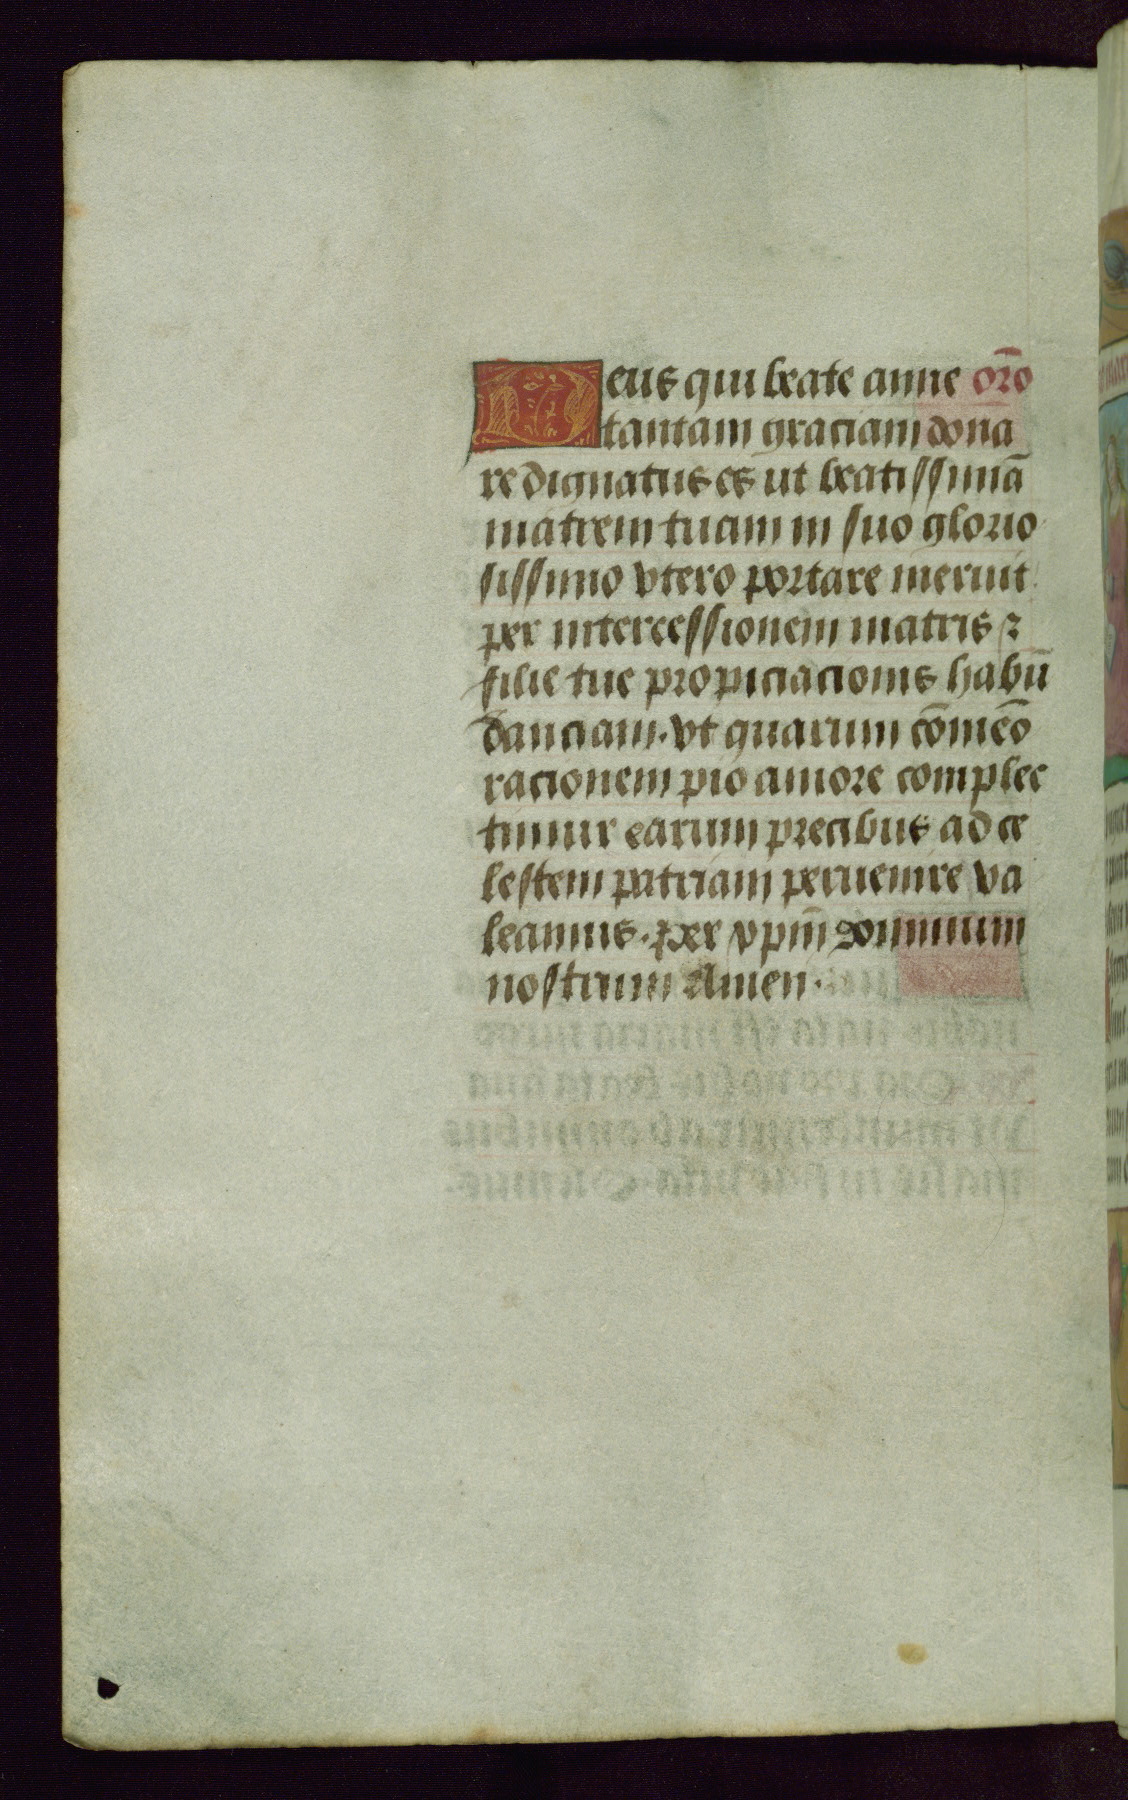 Deus qui beate anne orō
tantam graciam dona
re dignatus es ut beatissimā
matrem tuam in suo glorio
sissimo vtero portare meruit
per intercessionem matris ⁊
filie tue propiciacionis habū
danciam. vt quarum cōmēo
racionem pio amore complec
timur earum precibus ad ce
lestem patriam peruenire va
leamus. Per xpm̄ dominum
nostrum Amen.